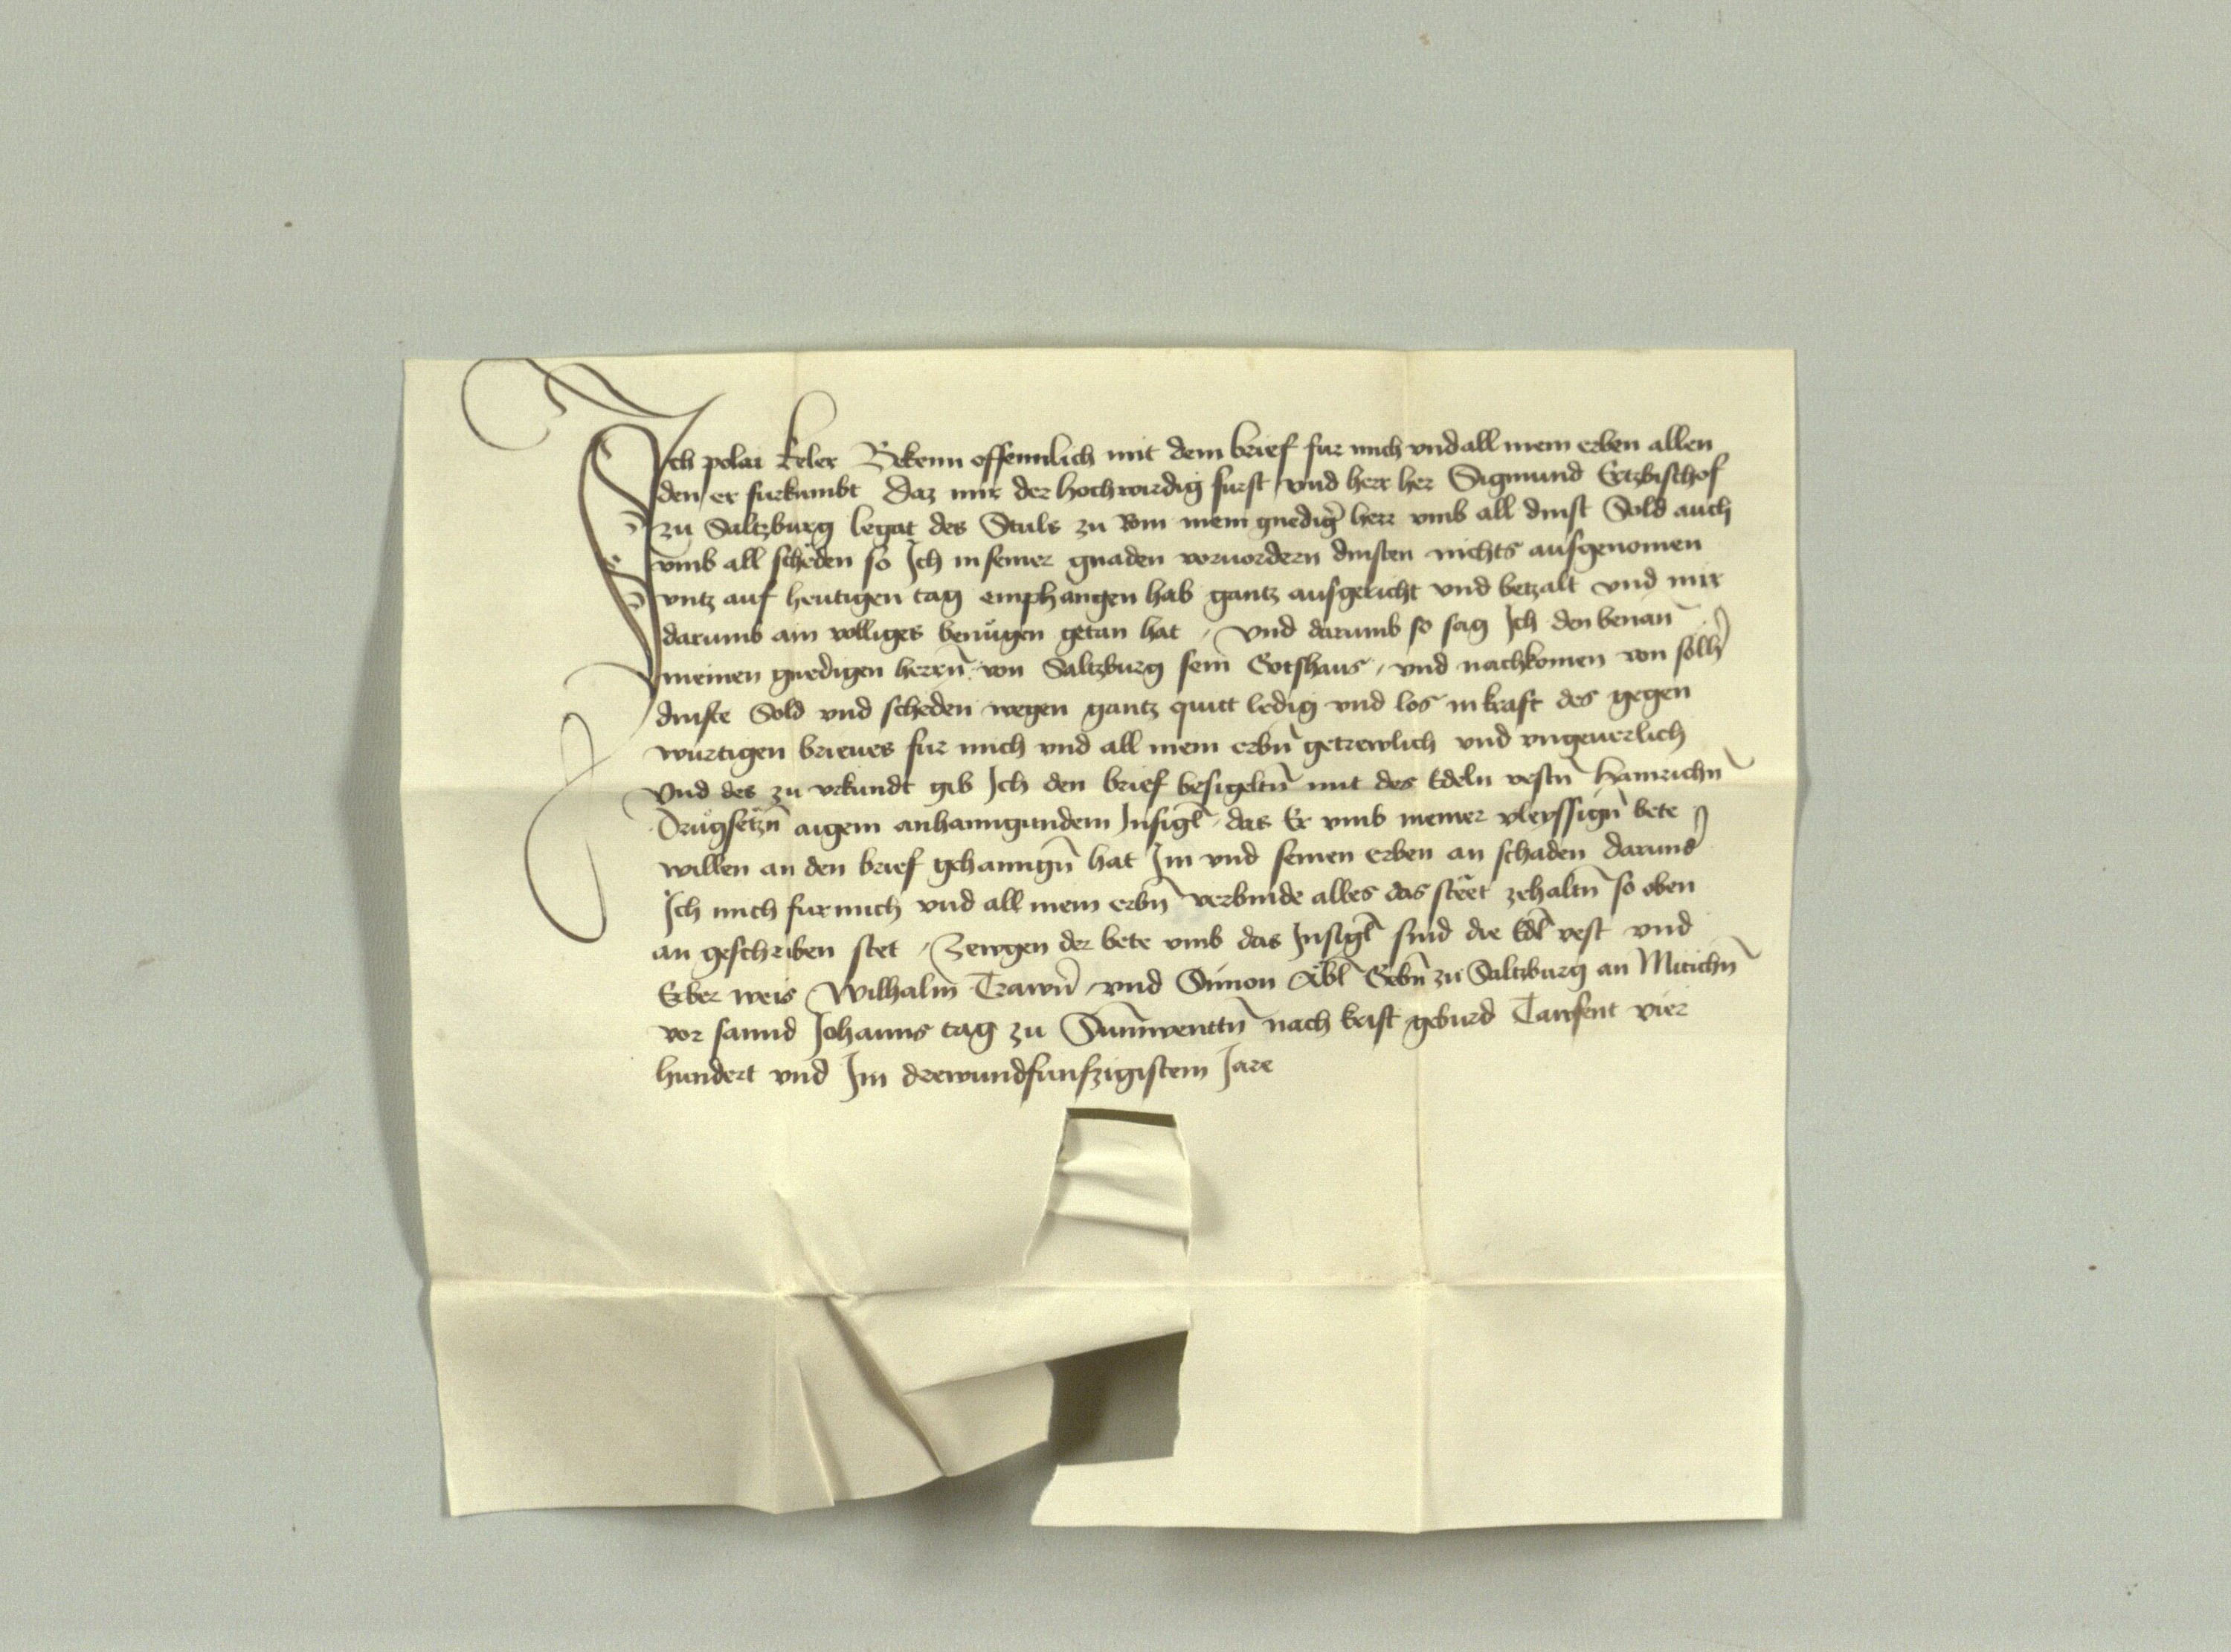 Ich polai keler Bekenn offennlich mit dem brief fur mich vnd all mein erben allen
den er furkumbt Daz mir der hochwirdig furst vnd herr her Sigmund Ertzbischof
zu Saltzburg legat des Stuls zu Rom mein gnedig̃ herr vmb all dinst Sold auch
vmb all schëden so Ich in seiner gnaden voruordern dinsten nichts ausgenomen
vntz auf heutigen tag emphangen hab gantz ausgericht vnd betzalt vnd mir
darumb ain volliges benůgen getan hat / Vnd darumb so sag Ich den benan̄
meinen gnedigen herrn̄ von Saltzburg sein Gotshaus / vnd nachkomen von sölh̄
dinste Sold vnd scheden wegen gantz quitt ledig vnd los in kraft des gegen
würtigen brieues fur mich vnd all mein erbn̄ getrewlich vnd vngeuerlich
Vnd des zu vrkundt gib Ich den brief besigeltn̄ mit des Edeln vestn̄ Hainrichn̄
Drůgsëtzn̄ aigem anhanngundem Insigl̄ / das Er vmb meiner vleyssign̄ bete
willen an den brief gehanngn̄ hat Im vnd seinen erben an schaden darund̄
Ich mich fur mich vnd all mein erbn̄ verbinde alles das stëet zehaltn̄ so oben
an geschriben stet / Zewgen der bete vmb das Insigl̄ sind die Edl̄ vest vnd
Erber weis Wilhalm̄ Trawn̄ / vnd Simon Äbl̄ Gebn̄ zu Saltzburg an Mitichn̄
vor sannd Johanns tag zu Sunnwenttn̄ nach krist geburd Tawsent vier
hundert vnd Im drewundfunfzigistem Jare